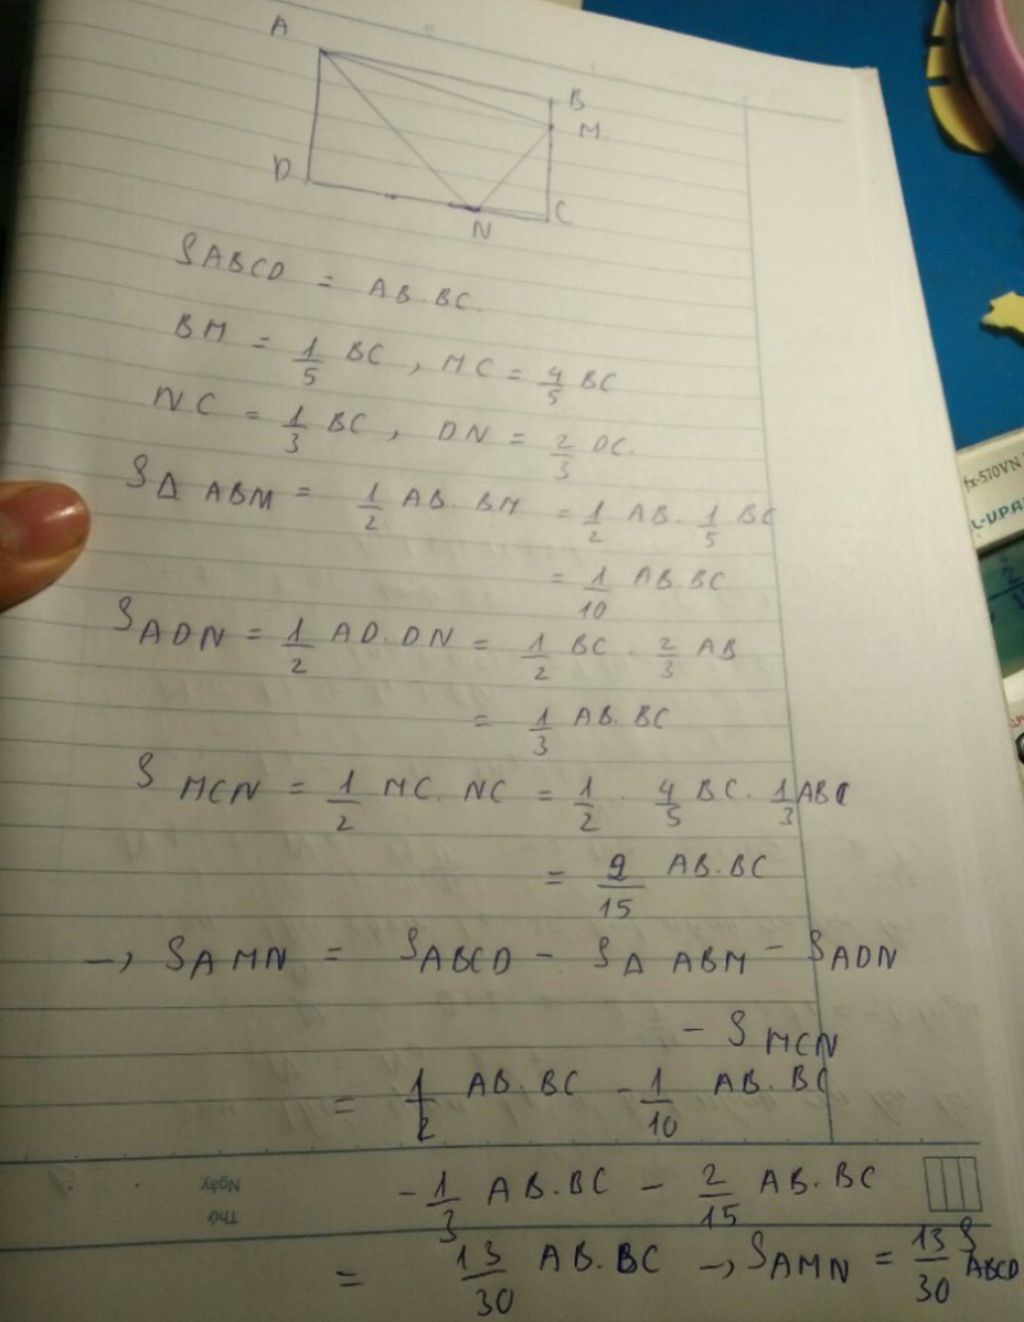 A
B
M
D
C
N
SABCD = AB.BC.
BM = 1/5 BC, MC = 4/5 BC
NC = 1/3 BC, DN = 2/3 DC.
SΔ ABM = 1/2 AB.BM = 1/2 AB. 1/5 BC
= 1/10 AB.BC
SADN = 1/2 AD.DN = 1/2 BC. 2/3 AB
= 1/3 AB.BC
S MCN = 1/2 MC.NC = 1/2 . 4/5 BC. 1/3 AB
= 2/15 AB.BC
→ SAMN = SABCD - SΔ ABM - SADN
- S MCN
= 1/2 AB.BC - 1/10 AB.BC
- 1/3 AB.BC - 2/15 AB.BC
= 13/30 AB.BC → SAMN = 13/30 S ABCD
Ngày
Thứ
fx-570VN